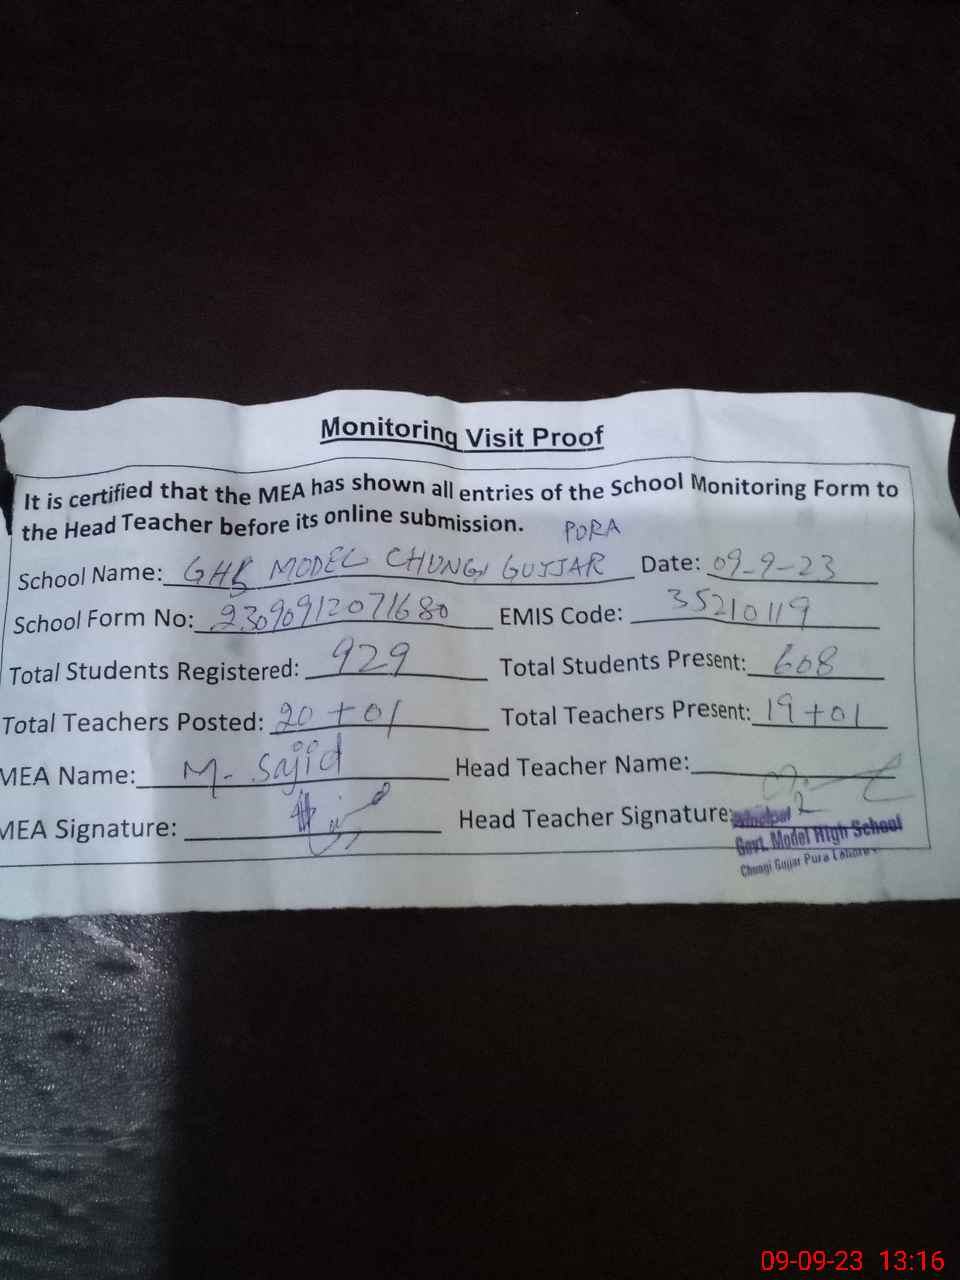 Monitoring Visit Proof
It is certified that the MEA has shown all entries of the School Monitoring Form to
the Head Teacher before its online submission.
PURA
School Name: GHS MODEL CHUNGI GUJJAR Date: 09-9-23
School Form No: 23090912071680 EMIS Code: 35210119
Total Students Registered: 929 Total Students Present: 608
Total Teachers Posted: 20+01 Total Teachers Present: 19+01
MEA Name: M. Sajid Head Teacher Name:
MEA Signature: Head Teacher Signature:
Principal
Govt. Model High School
Chungi Gujjar Pura Lahore
09-09-23 13:16